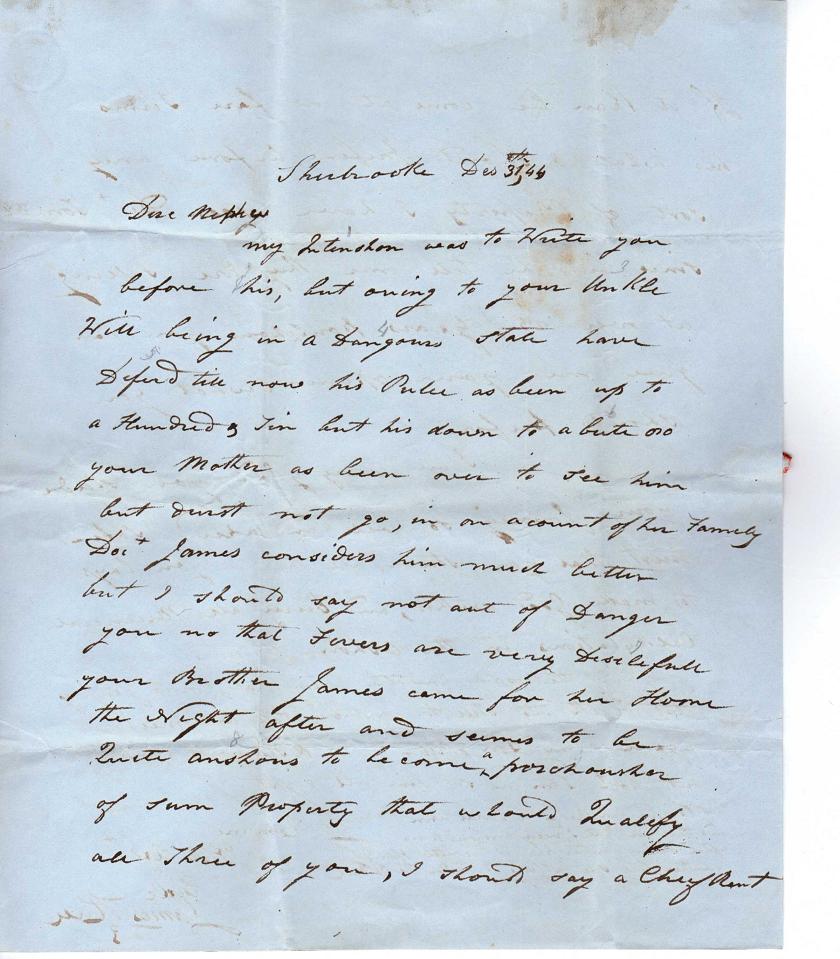 Sherbrooke Des 31th, 44
Dere Nephey
my Intenshon was to Write you
before his, but owing to your Unkle
Will being in a Dangours State have
Deferd till now his Pulce as been up to
a Hundred & Tin but his down to abute
your Mother as been over to see him
but durst not go, in on acount of her Famely
Doct James considers him much better
but I should say not out of Danger
you no that Fevers are very
your Brother James came for her Home
the Night after and seemes to be
Quite anshous to become a porschousher
of sum Property that whould Qualefy
all Three of you, I should say a Cheef Rent